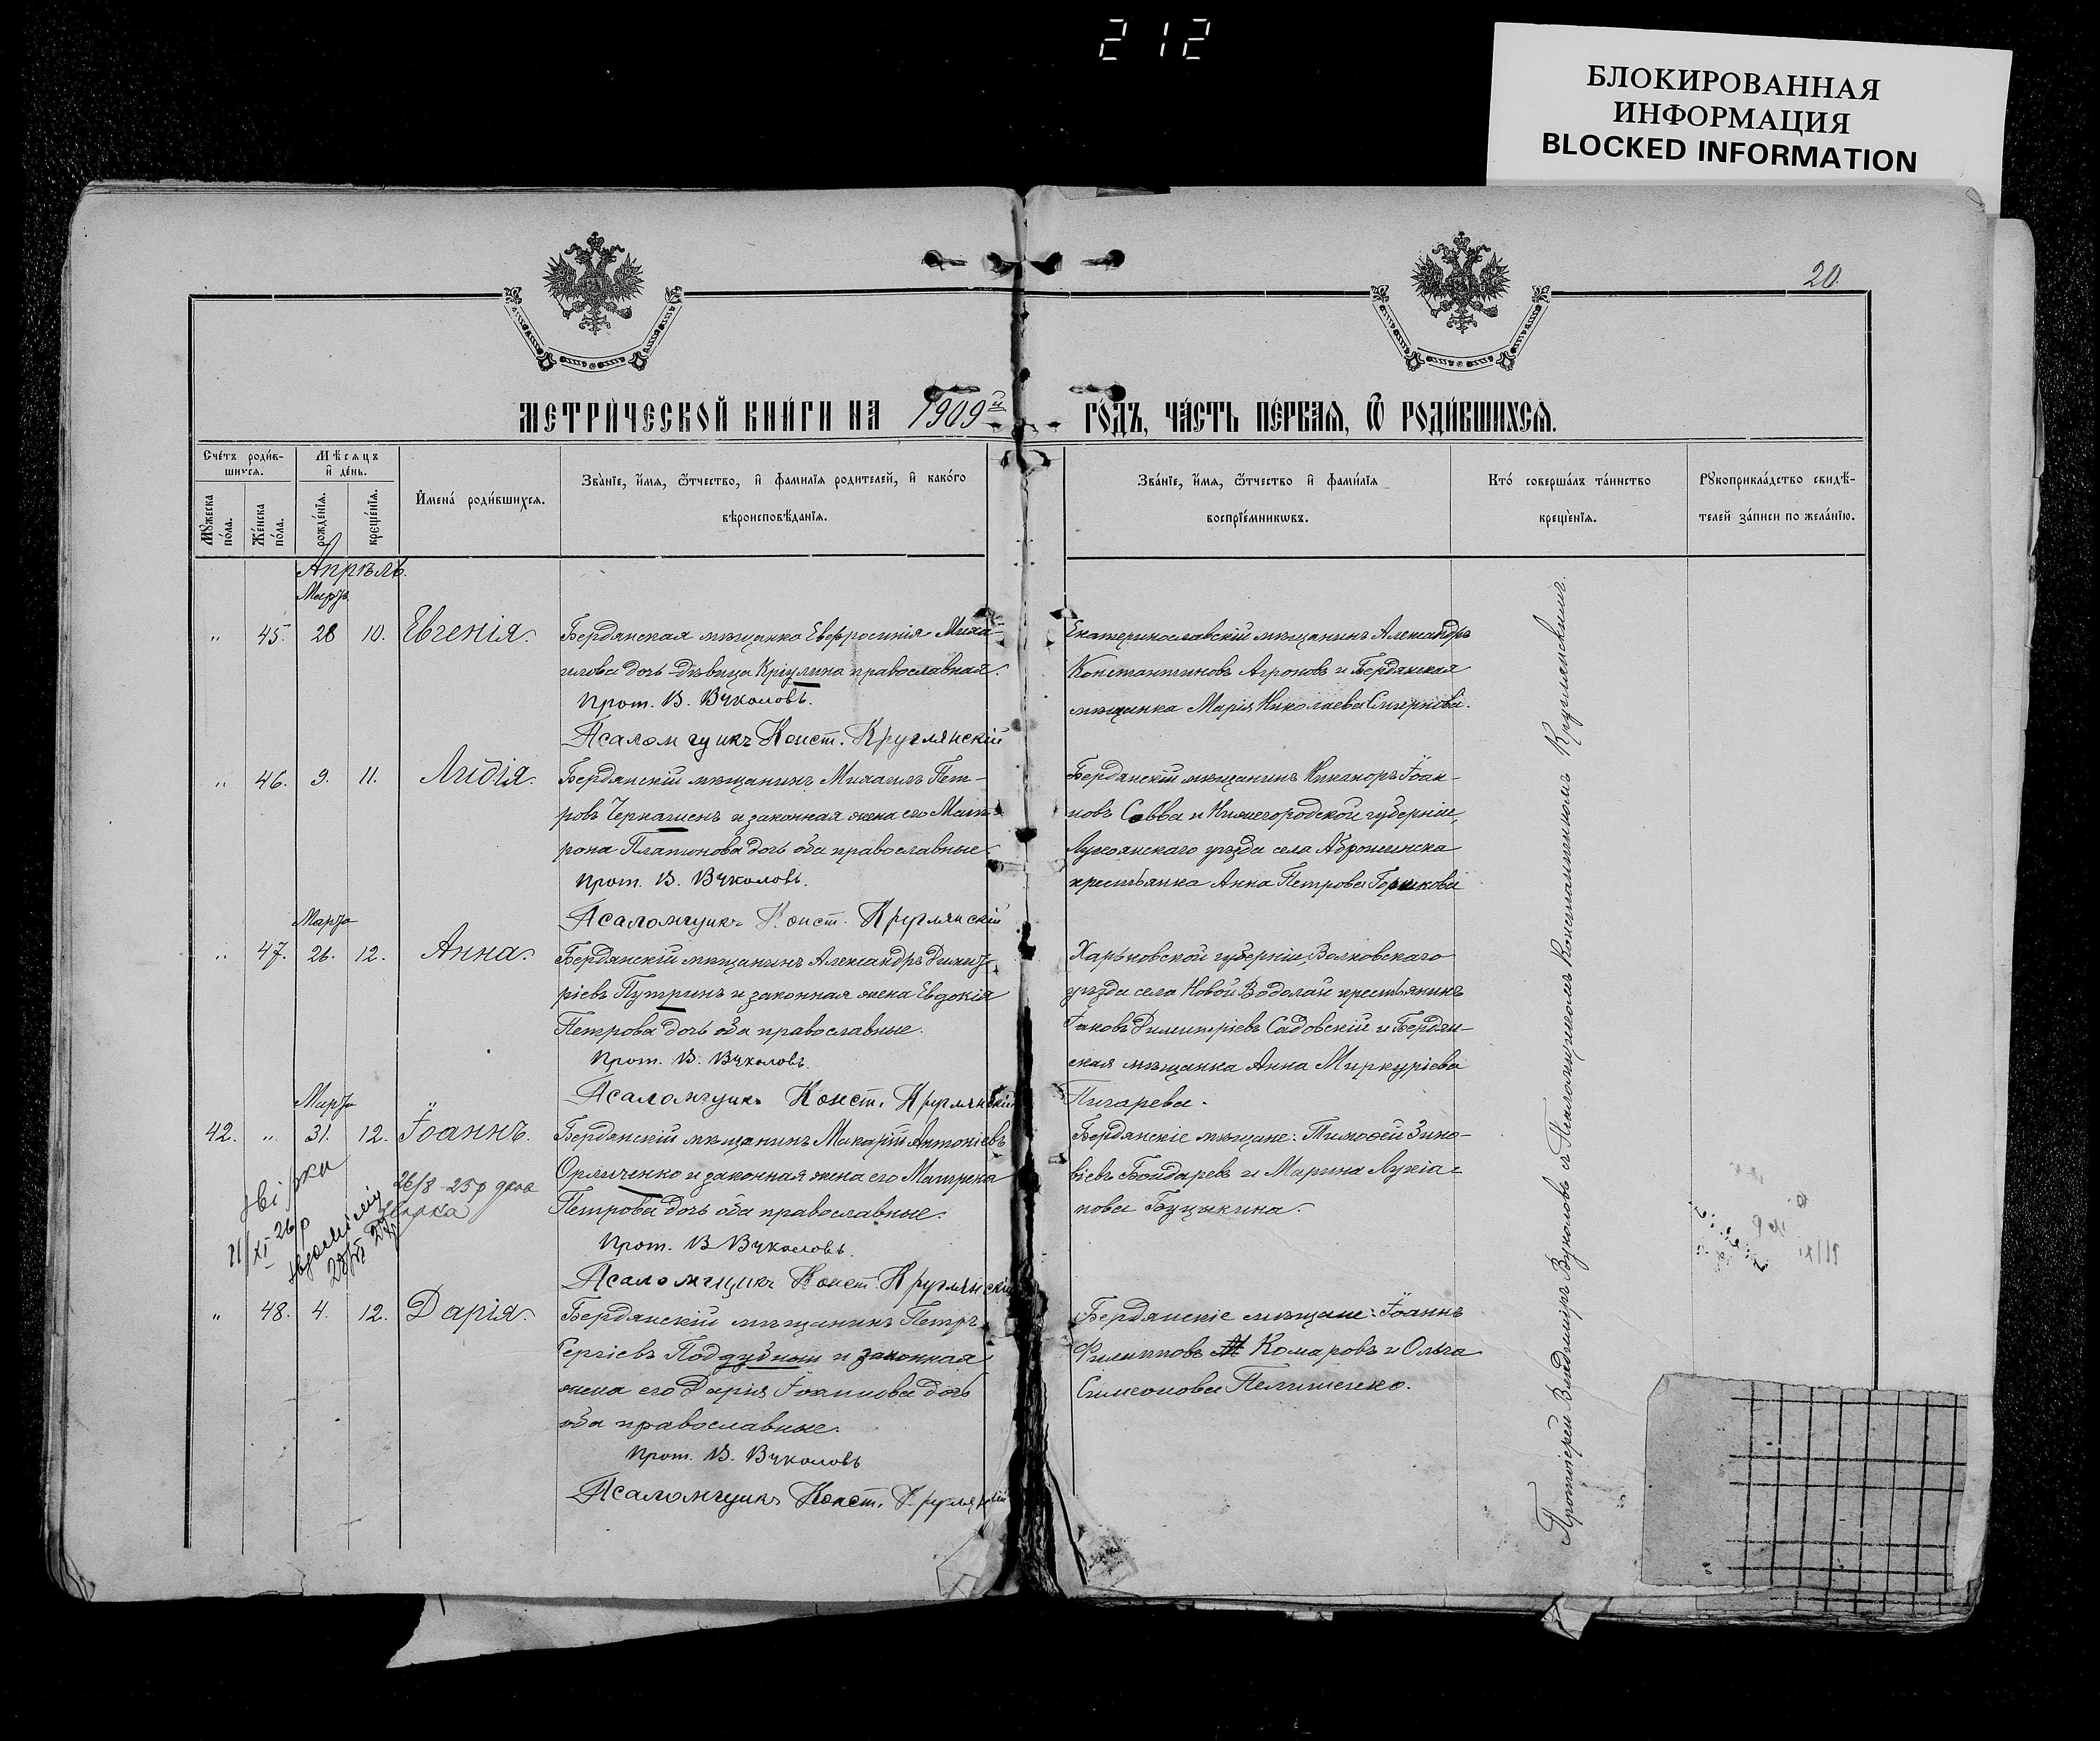 212
БЛОКИРОВАННАЯ
ИНФОРМАЦИЯ
BLOCKED INFORMATION
20.
МЕТРИ́ЧЕСКОЙ КНИ́ГИ НА 1909й
ГО́ДЪ, ЧА́СТЬ ПЕ́РВАЯ, Ѿ РОДИ́ВШИХСЯ.
Сче́тъ роди́в-
шихся.
Мѣсяцъ
и҆ де́нь.
Мꙋжеска
по́ла.
Же́нска
по́ла.
рожде́нїя.
креще́нїя.
И҆мена̀ роди́вшихся.
Зва́нїе, и҆́мя, ѻ҆́тчество, и҆ фами́лїя родителей, и҆ како́го
вѣроисповѣ́данїя.
Зва́нїе, и҆́мя, ѻ҆́тчество и҆ фами́лїя
воспрїе́мникωвъ.
Кто̀ соверша́лъ та́инство
креще́нїя.
Рꙋкоприкла́дство свидѣ́-
телей за́писи по жела́нїю.
Апрѣль.
Марта
" 45. 28 10. Евгенія.
Бердянская мѣщанка Евфросинія Миха-
илова дочь дѣвица Кріулина православная.
Прот. В. Вуколовъ.
Псаломщикъ Конст. Круглянскій
Екатеринославскій мѣщанинъ Александръ
Константиновъ Агроновъ и Бердянская
мѣщанка Марія Николаева
" 46. 9. 11. Лидія.
Бердянскій мѣщанинъ Михаилъ Пет-
ровъ и законная жена его Мат-
рона Платонова дочь оба православные.
Прот. В. Вуколовъ.
Псаломщикъ Конст. Круглянскій
Бердянскій мѣщанинъ Никаноръ Іоан-
новъ Савва и Нижегородской губерніи,
Лукоянскаго уѣзда села
крестьянка Анна Петрова Горшкова
Марта
" 47. 26. 12. Анна.
Бердянскій мѣщанинъ Александръ Димит-
ріевъ Путринъ и законная жена Евдокія
Петрова дочь оба православные.
Прот. В. Вуколовъ.
Псаломщикъ Конст. Круглянскій
Харьковской губерніи, Валковскаго
уѣзда села Новой Водолаги крестьянинъ
Іаковъ Димитріевъ Садовскій и Бердян-
ская мѣщанка Анна Меркуріева
Пигарева.
Марта
42. " 31. 12. Іоаннъ.
Бердянскій мѣщанинъ Макарій Антоніевъ
Орличенко и законная жена его Матрена
Петрова дочь оба православные.
Прот. В. Вуколовъ.
Псаломщикъ Конст. Круглянскій
Бердянскіе мѣщане: Тимофей Зино-
віевъ Бондарев и Марина Лукіа-
нова Буцыкина.
26/8-25р
" 48. 4. 12. Дарія.
Бердянскій мѣщанинъ Петръ
Сергіевъ Поддубный и законная
жена его Дарія Іоаннова дочь
оба православные.
Прот. В. Вуколовъ
Псаломщикъ Конст. Круглянскій
Бердянскіе мѣщане: Іоаннъ
Филипповъ Комаровъ и Ольга
Симеонова
Протоіерей Владиміръ Вуколовъ съ Псаломщикомъ Константиномъ Круглянскимъ.